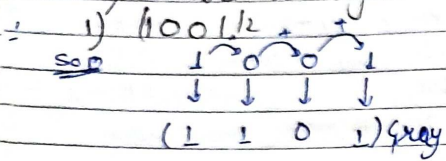 ÷ 1) (1001)2
Sol? 1 + 0 + 0 + 1
↓ ↓ ↓ ↓
(1 1 0 1) Gray